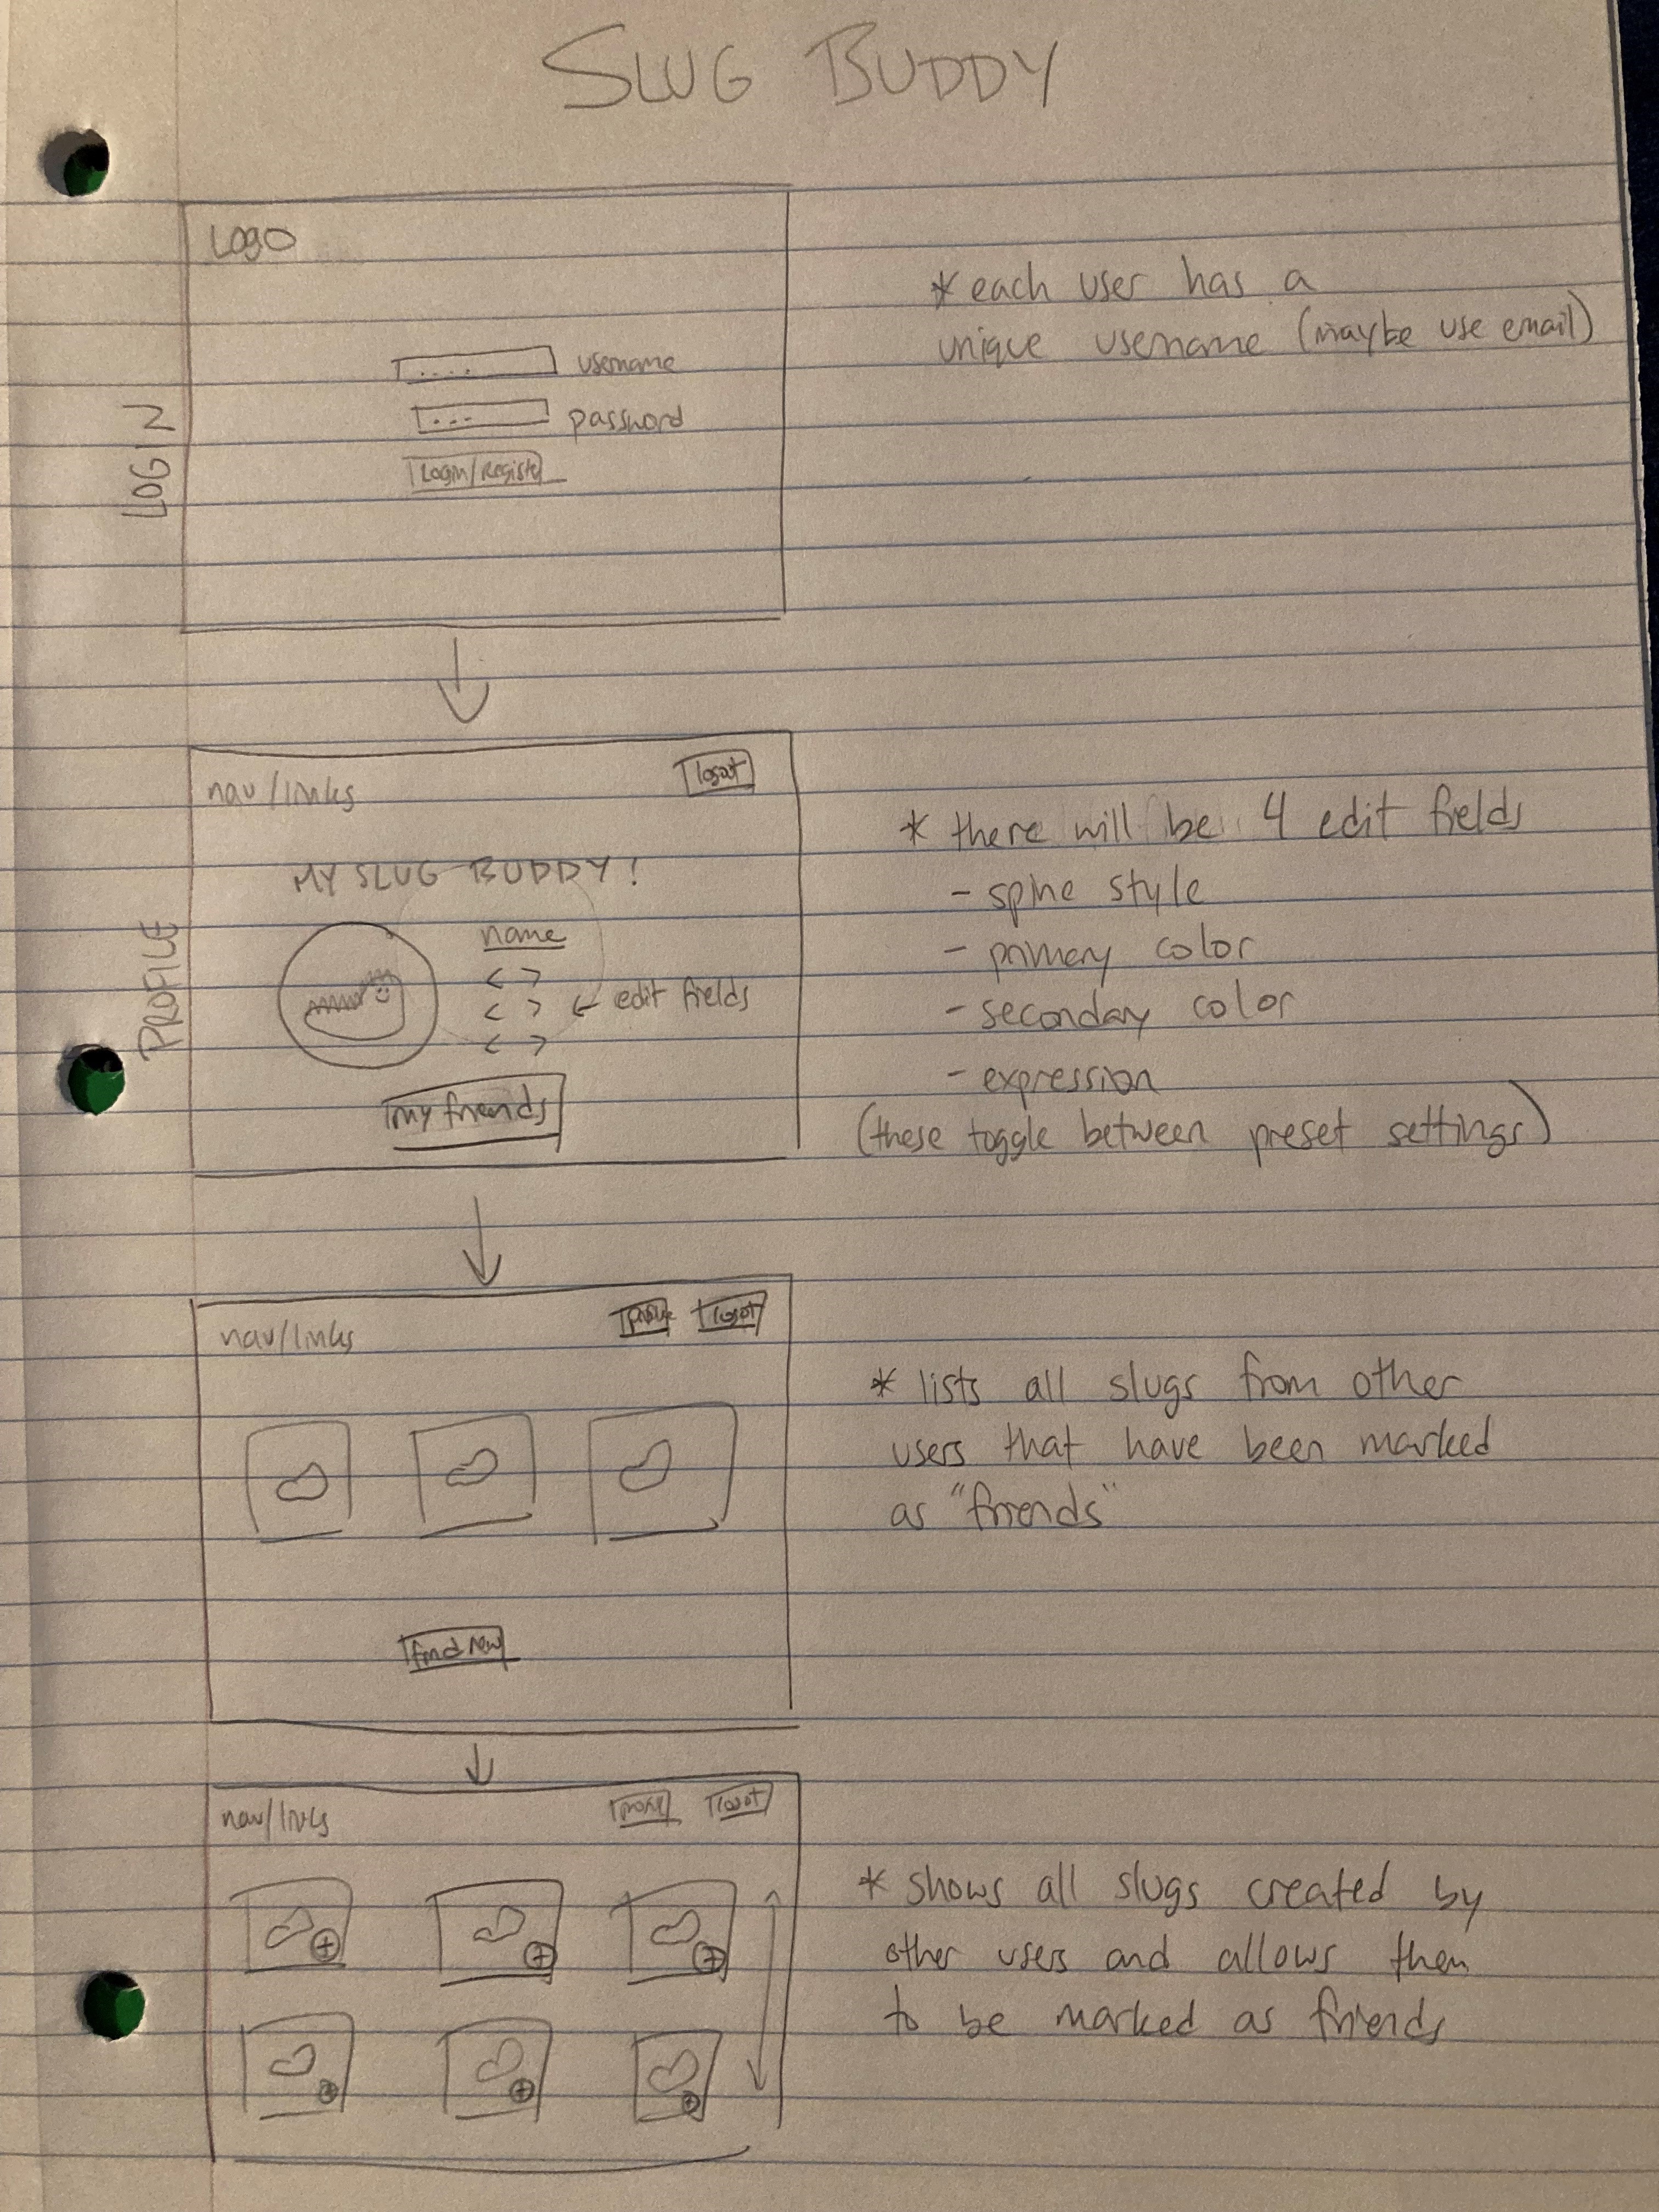 SLUG BUDDY
LOGIN
Logo
username
password
Login/Register
* each user has a
unique username (maybe use email)
PROFILE
nav/links
logout
MY SLUG BUDDY!
name
< >
< > ← edit fields
< >
my friends
* there will be 4 edit fields
- spine style
- primary color
- secondary color
- expression
(these toggle between preset settings)
nav/links
profile logout
find new
* lists all slugs from other
users that have been marked
as "friends"
nav/links
profile logout
* shows all slugs created by
other users and allows them
to be marked as friends